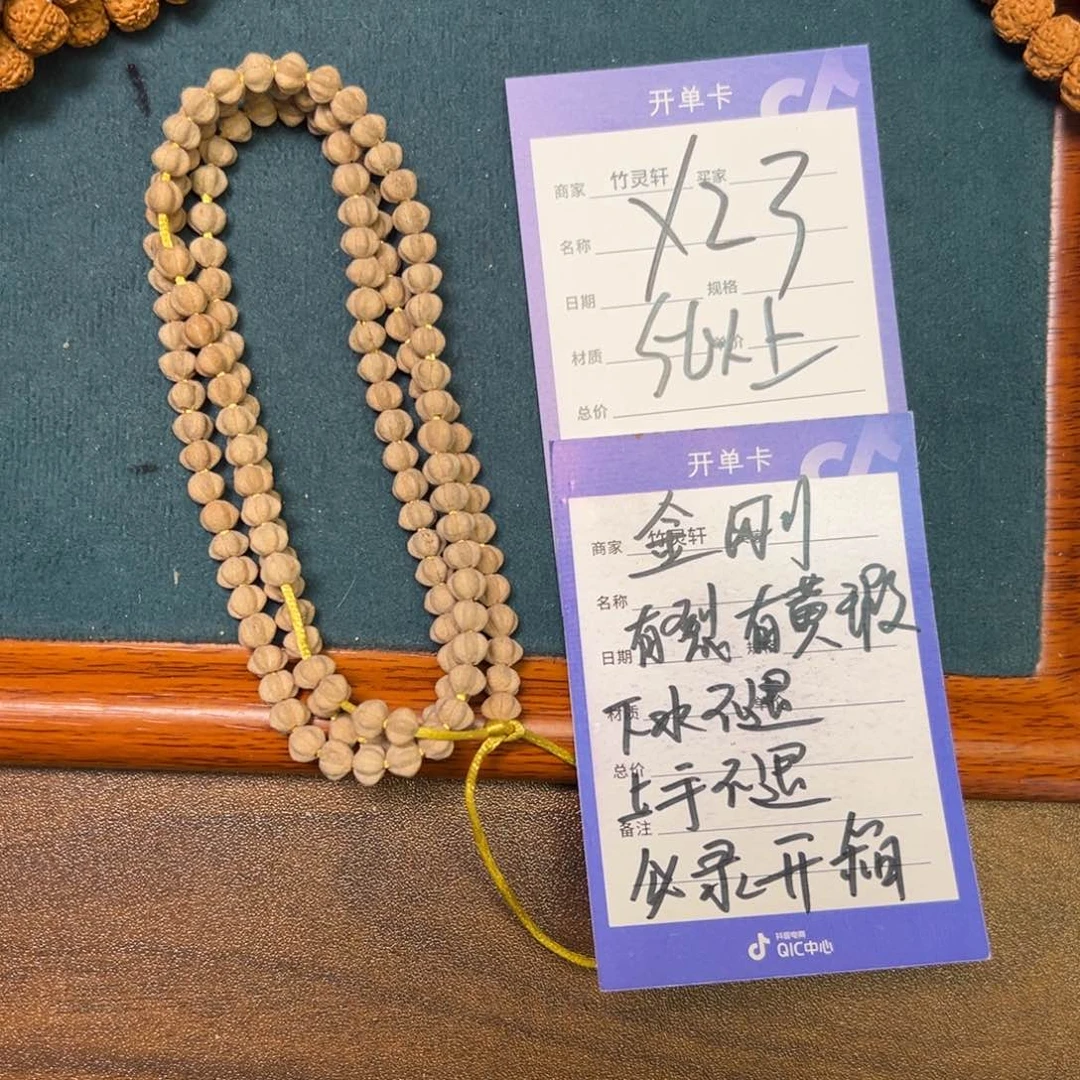 开单卡
商家 竹灵轩 买家
X23
名称
日期 规格
材质
总价
开单卡
金刚
商家 竹灵轩
名称
有裂有黄瑕
日期
下水不退
材质
总价
上手不退
备注
必录开箱
抖音电商
QIC中心